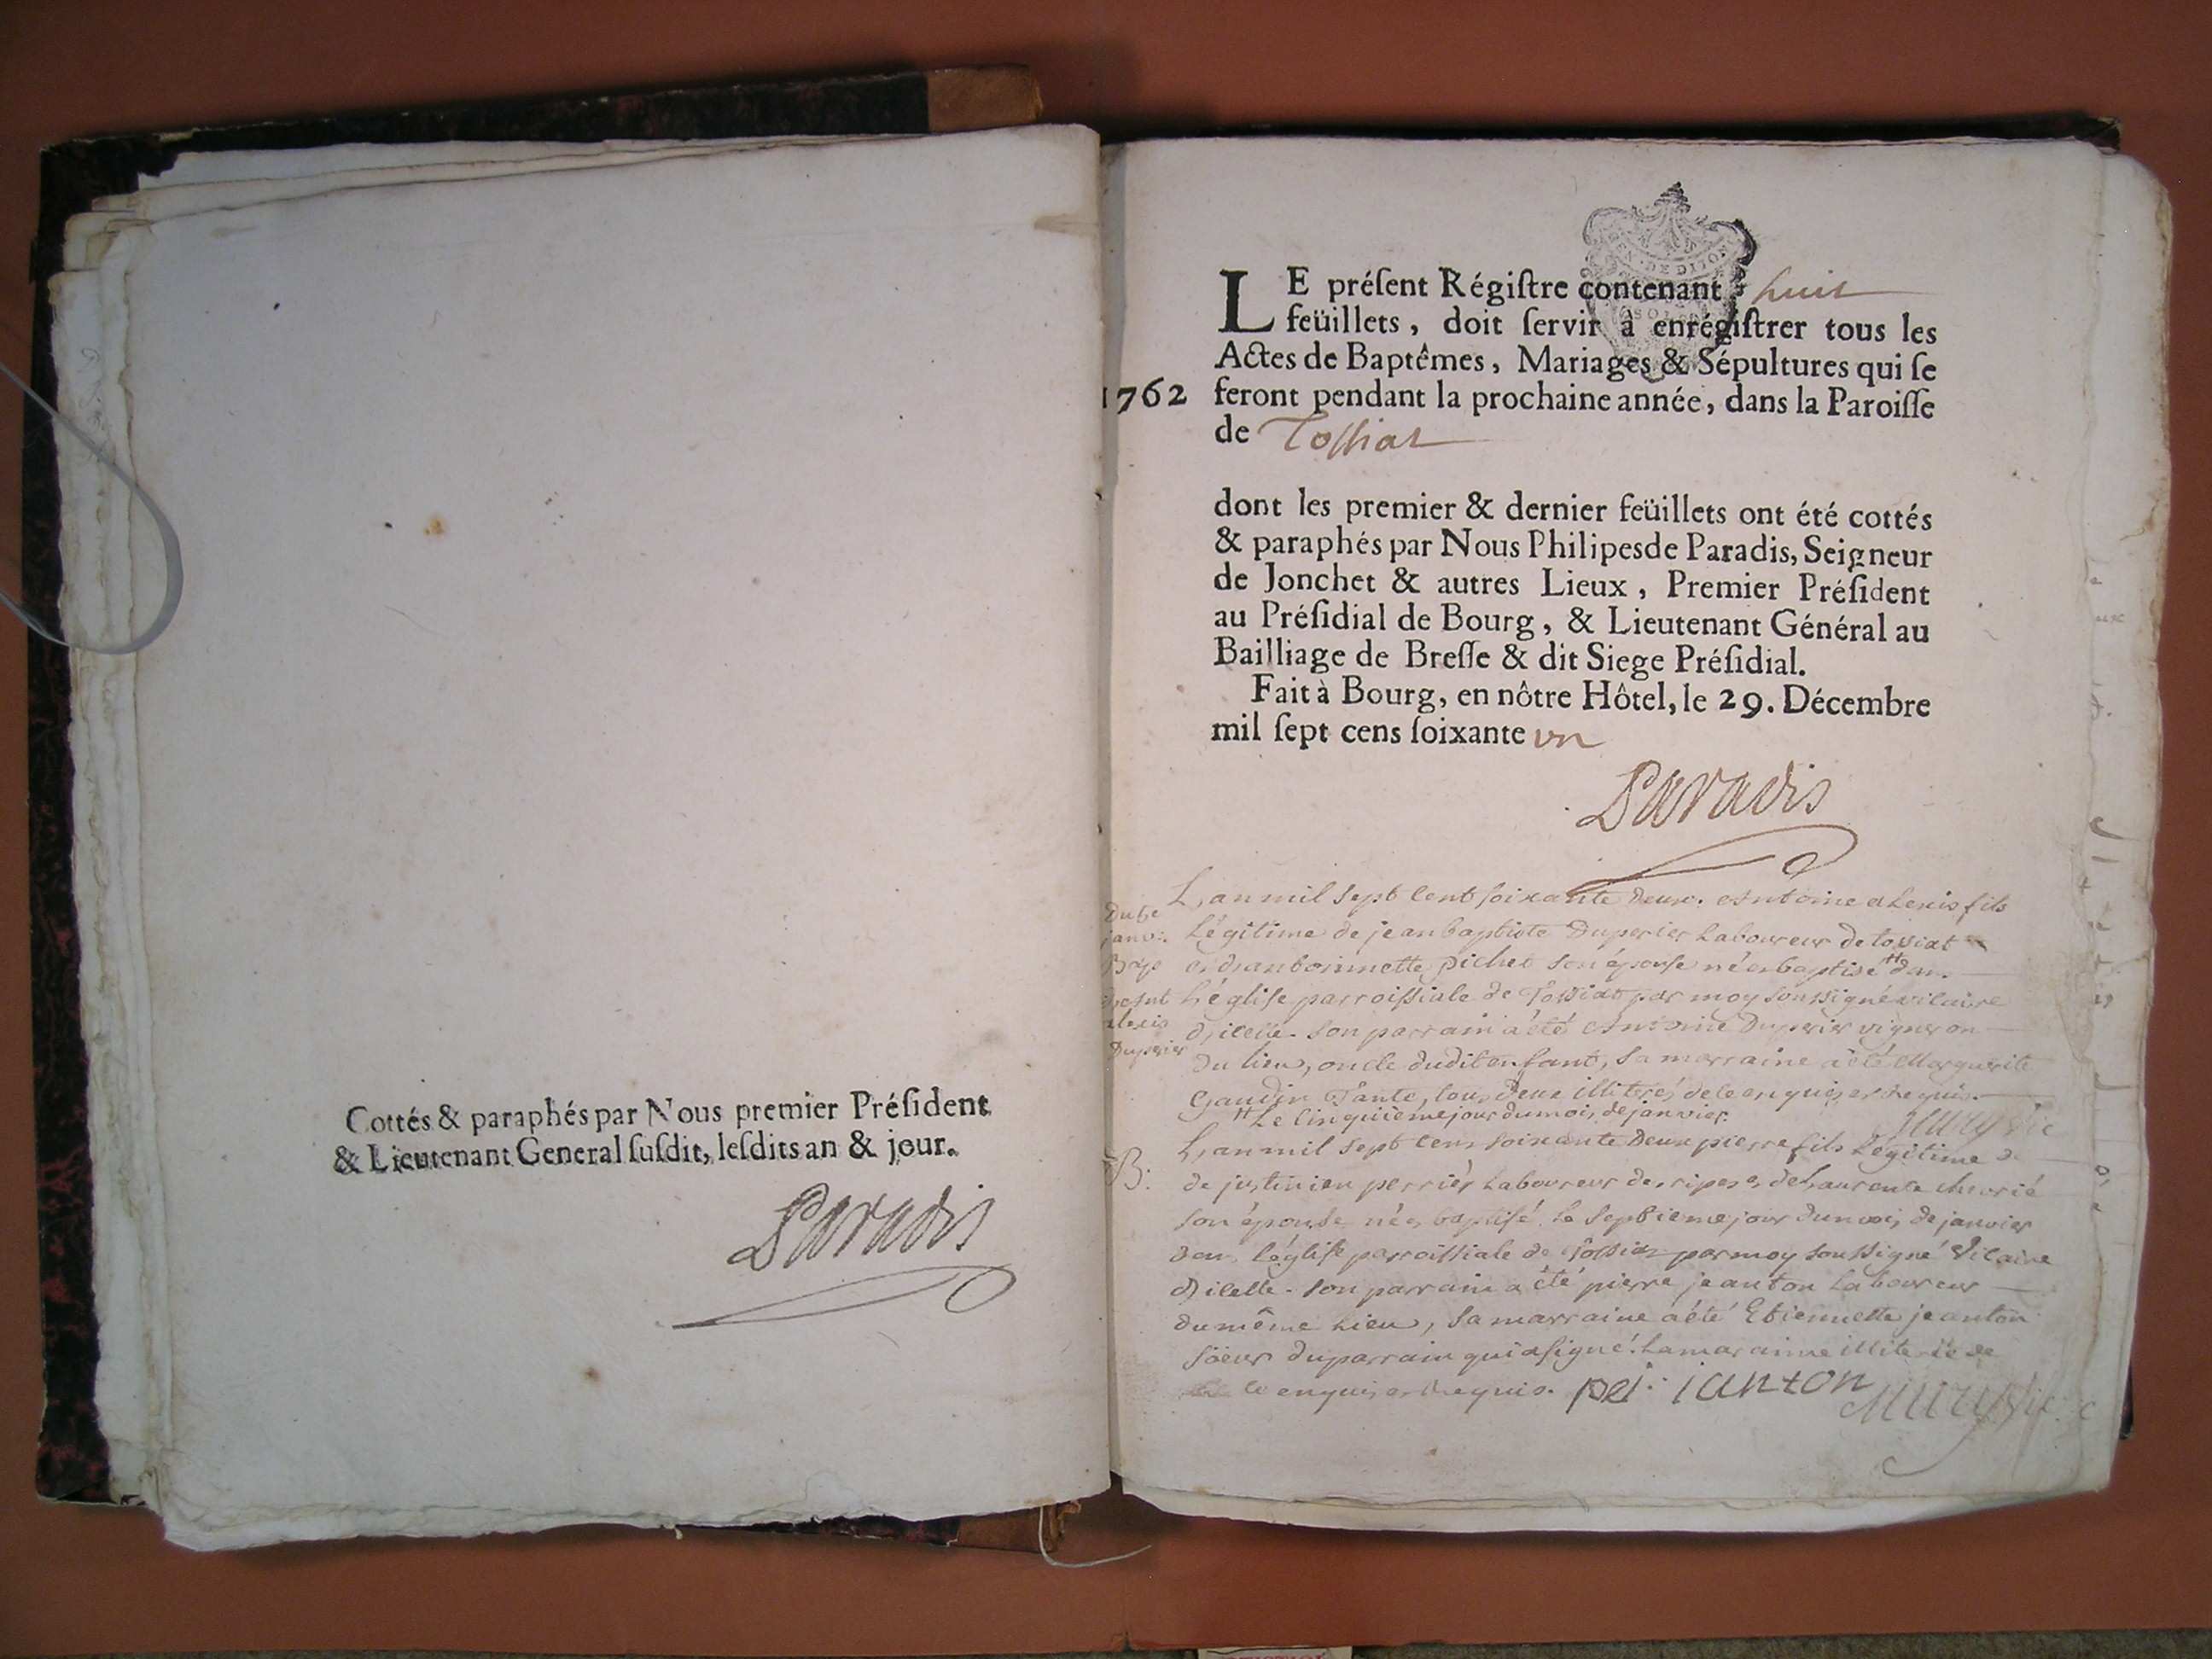 Cottés & paraphés par Nous premier Préſident
& Lieutenant General ſuſdit, leſdits an & jour.
Paradis
GEN · DE DIJON
LE préſent Régiſtre contenant huit
feüillets, doit ſervir à enrégiſtrer tous les
Actes de Baptêmes, Mariages & Sépultures qui ſe
1762 feront pendant la prochaine année, dans la Paroiſſe
de Toſſiat
dont les premier & dernier feüillets ont été cottés
& paraphés par Nous Philipes de Paradis, Seigneur
de Jonchet & autres Lieux, Premier Préſident
au Préſidial de Bourg, & Lieutenant Général au
Bailliage de Breſſe & dit Siege Préſidial.
Fait à Bourg, en nôtre Hôtel, le 29. Décembre
mil ſept cens ſoixante un
Paradis
janv.
Bap
alexis
Duperier
L'an mil sept cent soixante deux. Antoine alexis fils
Légitime de jean baptiste Duperier Laboureur de tossiat
et d'anthoinnette pichet son épouse né et baptisé # dans
L'église parroissiale de Tossiat par moy soussigné vicaire
d'icelle. Son parrain a été Antoine Duperier vigneron
du lieu, oncle dudit enfant, Sa marraine a été Marguerite
gaudin Tante, tous deux illiterés de ce enquis et requis.
# Le cinquieme jour du mois de janvier.
Mury vic
B:
L'an mil sept cens soixante deux pierre fils Légitime de
de justinien perrier Laboureur des ripes et de Laurente
son épouse né et baptisé le septieme jour du mois de janvier
dans l'église parroissiale de Tossiat par moy soussigné Vicaire
d'icelle. Son parrain a été pierre jeanton Laboureur
du même Lieu, Sa marraine a été Etiennette jeanton
Sœur du parrain qui a signé. La maraine illiterée de
ce enquis et requis. pei: ianton
Mury vic